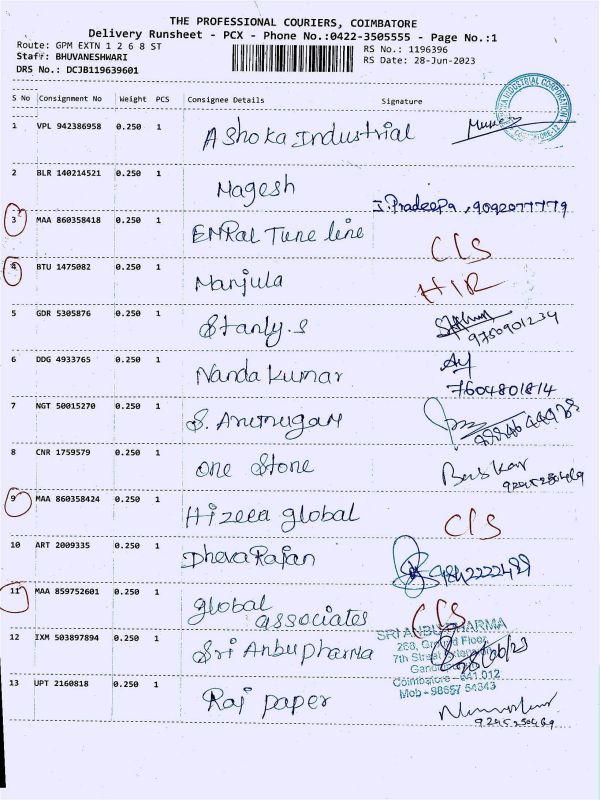 THE PROFESSIONAL COURIERS, COIMBATORE
Delivery Runsheet - PCX - Phone No.:0422-3505555 - Page No.:1
Route: GPM EXTN 1 2 6 8 ST RS No.: 1196396
Staff: BHUVANESHWARI RS Date: 28-Jun-2023
DRS No.: DCJB119639601
S No Consignment No Weight PCS Consignee Details Signature
1 VPL 942386958 0.250 1 Ashoka Industrial
2 BLR 140214521 0.250 1 Magesh J.Pradeepa, 9092077779
3 MAA 860358418 0.250 1 ENRal Tune line CIS
4 BTU 1475082 0.250 1 Manjula HIR
5 GDR 5305876 0.250 1 Stanly.S 9750901234
6 DDG 4933765 0.250 1 Nanda Kumar 7604801814
7 NGT 50015270 0.250 1 S. Arumugam
8 CNR 1759579 0.250 1 One Stone Baskar
9 MAA 860358424 0.250 1 Hizeea global CIS
10 ART 2009335 0.250 1 DhevaRajan 9842222489
11 MAA 859752601 0.250 1 global associates CIS
12 IXM 503897894 0.250 1 Sri Anbu pharma
SRI ANBU PHARMA
268, Ground Floor,
7th Street Extension
Coimbatore - 641 012
Mob - 98657 54343
13 UPT 2160818 0.250 1 Raj paper